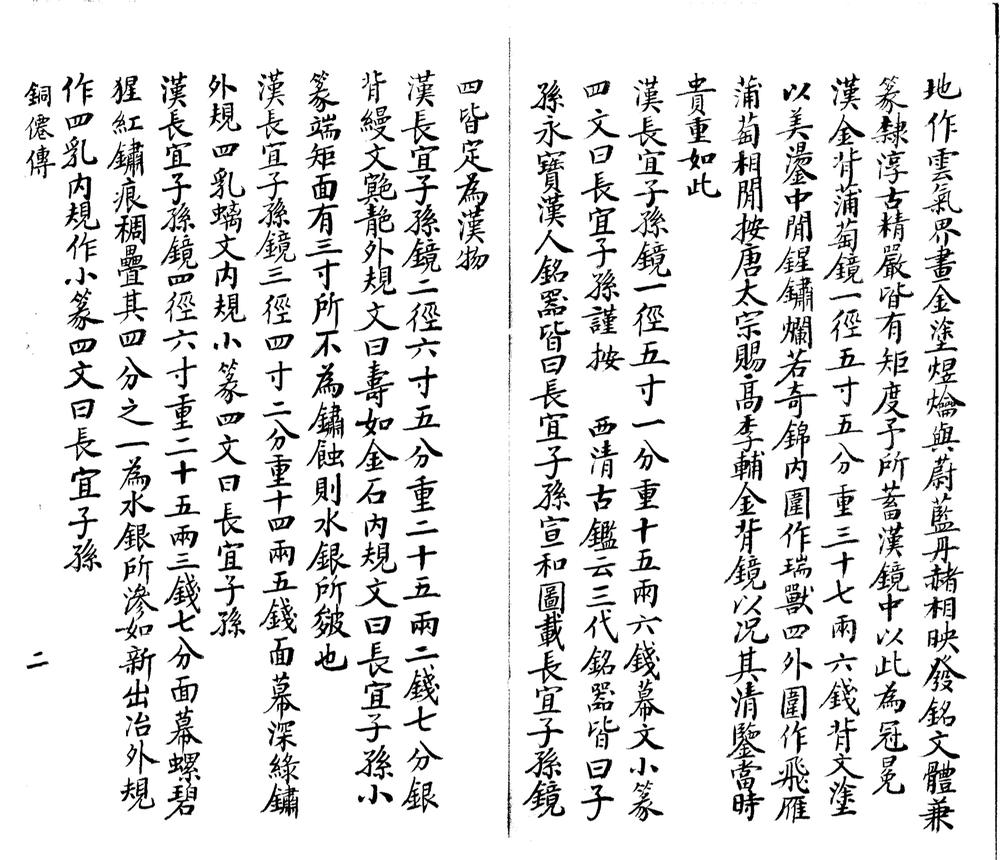 地作雲氣界畫金塗煜爚與蔚藍丹赭相映發銘文體兼
篆隸淳古精嚴皆有矩度予所蓄漢鏡中以此為冠冕
漢金背蒲萄鏡一徑五寸五分重三十七兩六錢背文塗
以美鎏中閒鍟鏽爛若奇錦內圍作瑞獸四外圍作飛雁
蒲萄相閒按唐太宗賜高季輔金背鏡以况其清鑒當時
貴重如此
漢長宜子孫鏡一徑五寸一分重十五兩六錢幕文小篆
四文曰長宜子孫謹按 西清古鑑云三代銘器皆曰子
孫永寶漢人銘器皆曰長宜子孫宣和圖載長宜子孫鏡
四皆定為漢物
漢長宜子孫鏡二徑六寸五分重二十五兩二錢七分銀
背縵文靘外規文曰壽如金石內規文曰長宜子孫小
篆端矩面有三寸所不為鏽蝕則水銀所皴也
漢長宜子孫鏡三徑四寸二分重十四兩五錢面幕深綠鏽
外規四乳螭文內規小篆四文曰長宜子孫
漢長宜子孫鏡四徑六寸重二十五兩三錢七分面幕螺碧
猩紅鏽痕稠疊其四分之一為水銀所滲如新出冶外規
作四乳內規作小篆四文曰長宜子孫
銅僊傳 二